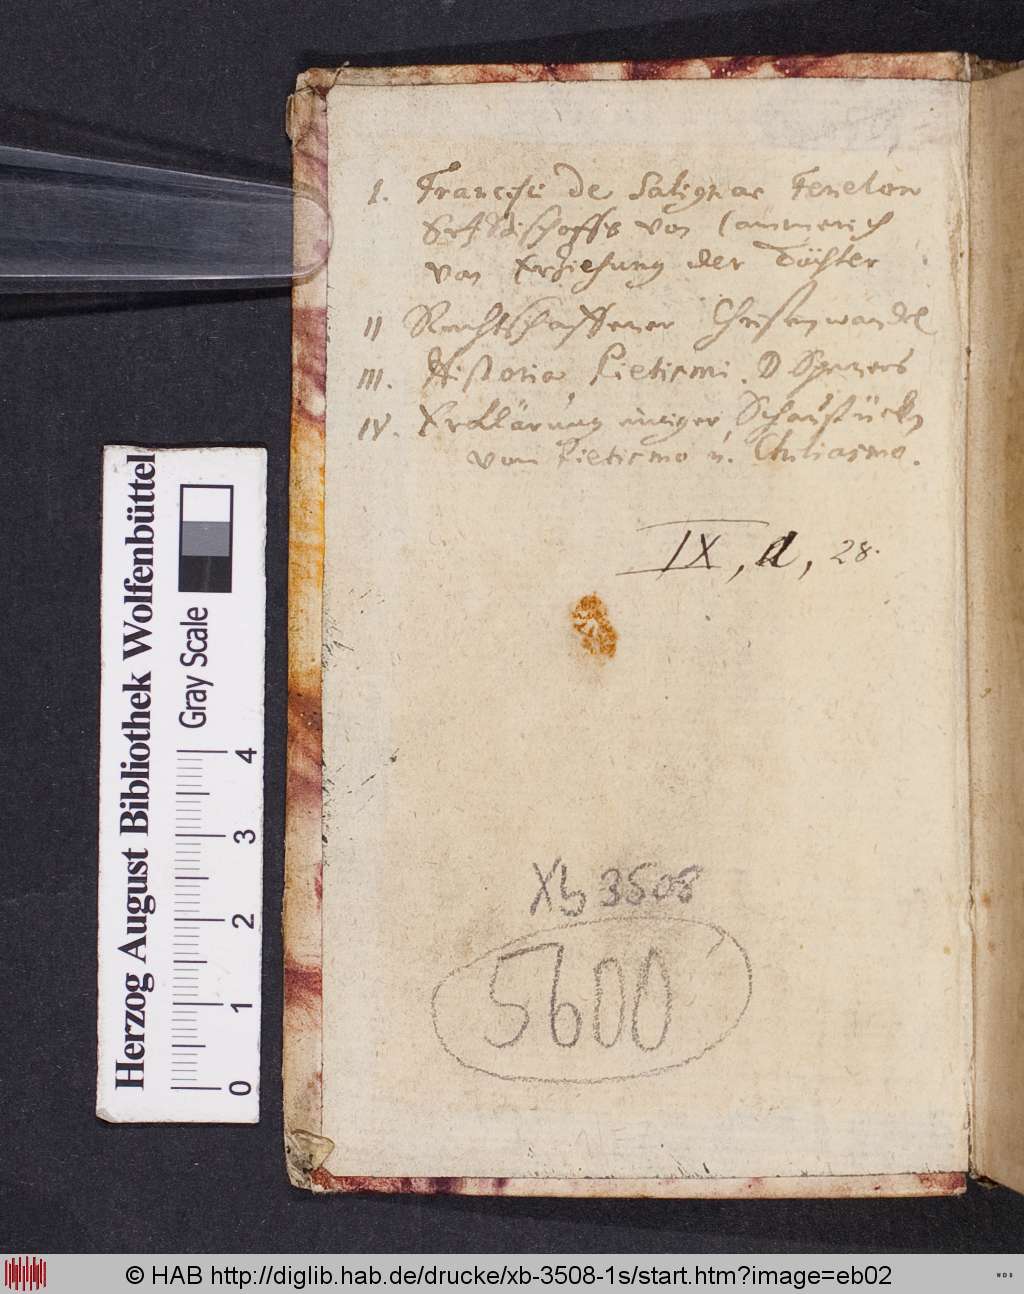 I. Francisci de Salignac Fenelon
Ertzbischoffs von Cammerich
von Erziehung der Töchter
II Rechtschaffener Christenwandel
III. Historia Pietismi. D Speners
IV. Erklärung einiger Schaustücken
vom Pietismo u. Chiliasmo.
IX, d, 28.
Xb 3508
5600
Herzog August Bibliothek Wolfenbüttel
Gray Scale
0 1 2 3 4
© HAB http://diglib.hab.de/drucke/xb-3508-1s/start.htm?image=eb02